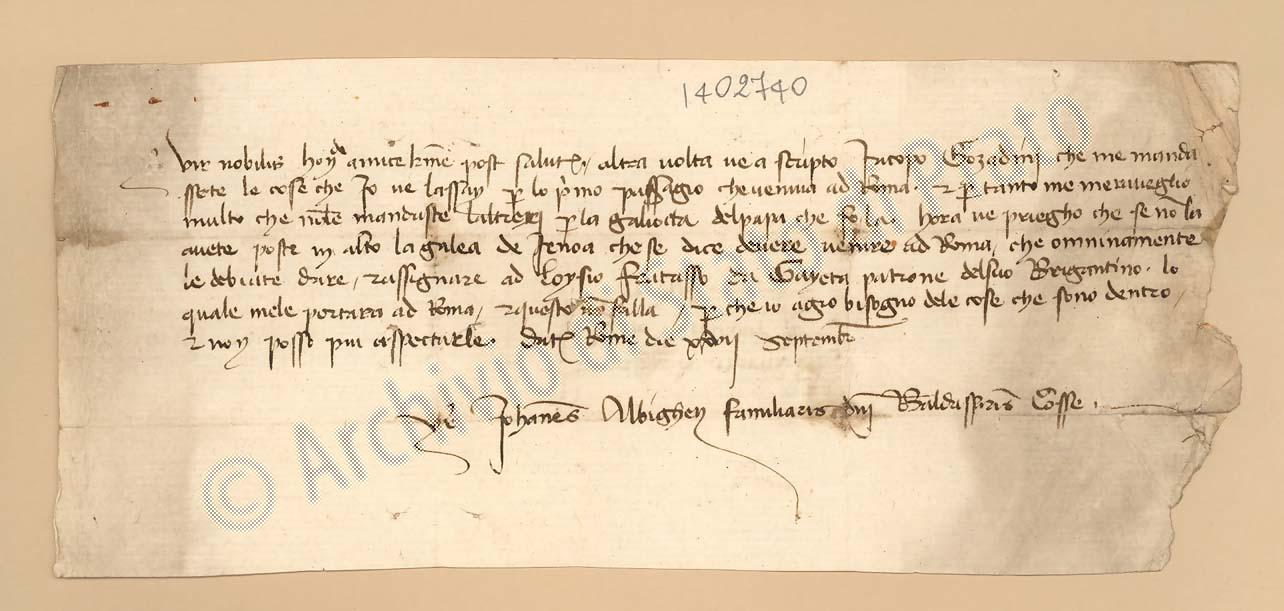 1402740
Vir nobilis hon͞d amice k͞me post salut͞ altra volta ve a scripto Jacopo Gozadini che me manda
ssete le cose che Jo ve lassay p lo p͞mo passagio che veniva ad Roma. Et p tanto me meraveglio
multo che mandaste laltreri p la galiocta del papa che Hora ve priegho che se no la
avete poste in alto la galea de Jenoa che se dice devere venire ad Roma, che omninamente
le debiate dare, et assignare ad Loysio fracasso da Gayeta patrone del suo Brigantino. lo
quale mele portara ad Roma, et questo no falla, p che io agio bisogno dele cose che sono dentro,
et non posso piu aspectarle. Dat͞ Rome die xxvii Septembr͞
Vr͞ Johanes Albighen familiaris dni Baldassaris Cosse.
© Archivio di Stato di Prato